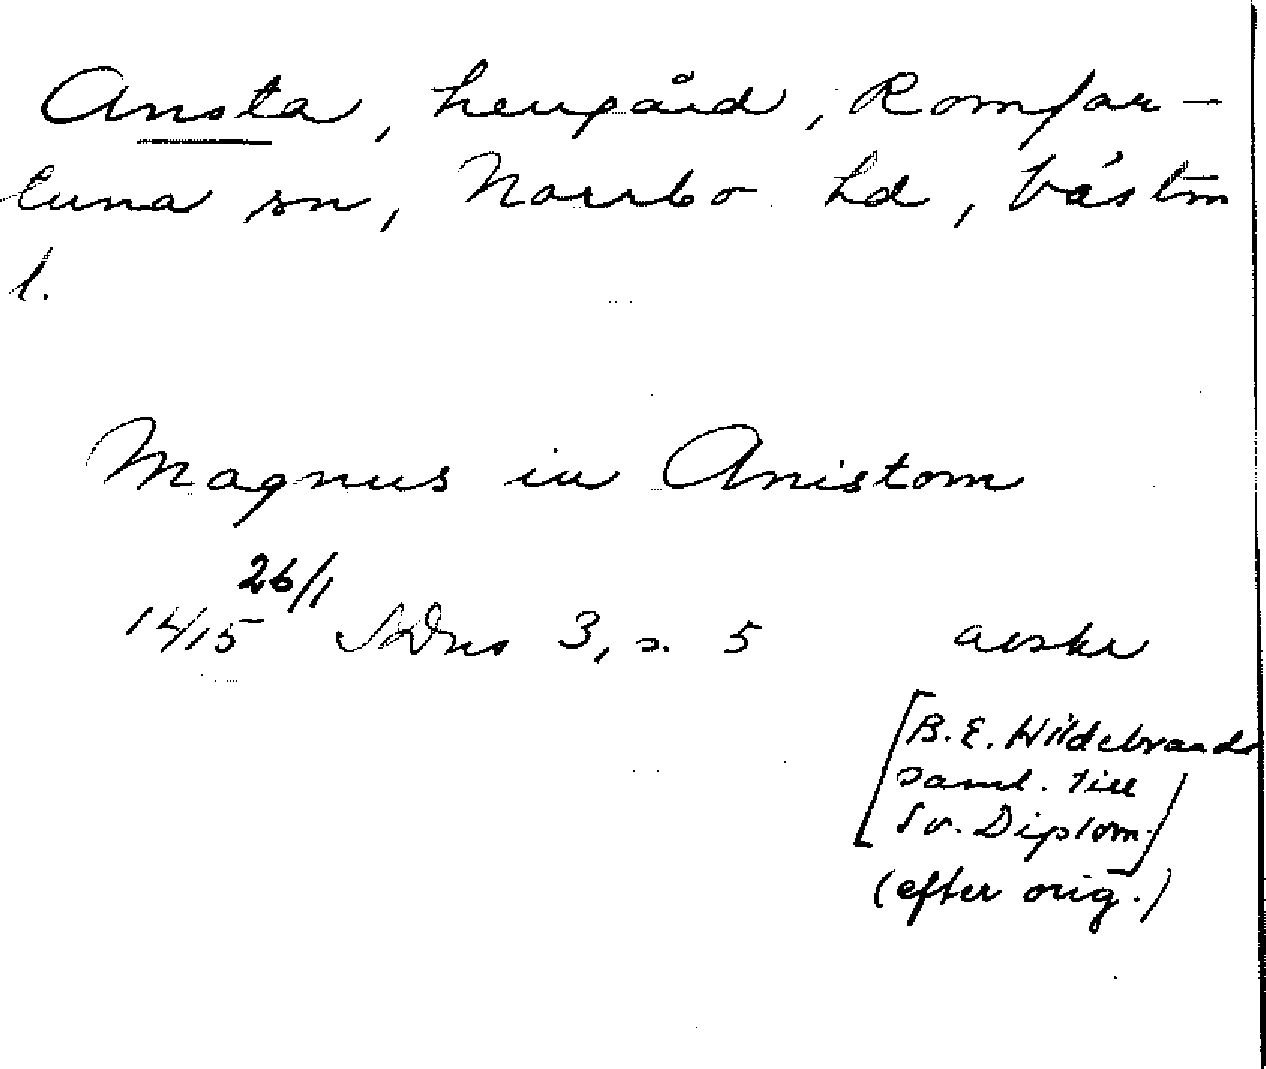 Ansta, herrgård, Romfar-
tuna sn, Norrbo hd, Västm
l.
Magnus in Anistom
1415 26/1 SDns 3, s. 5 avskr
[B.E. Hildebrands
saml. till
Sv. Diplom.]
(efter orig.)